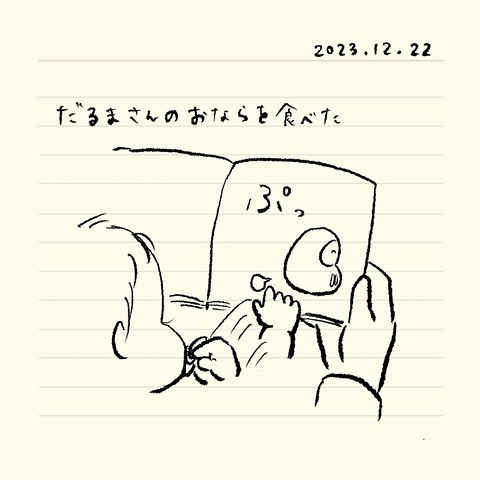 2023.12.22
だるまさんのおならを食べた
ぷっ